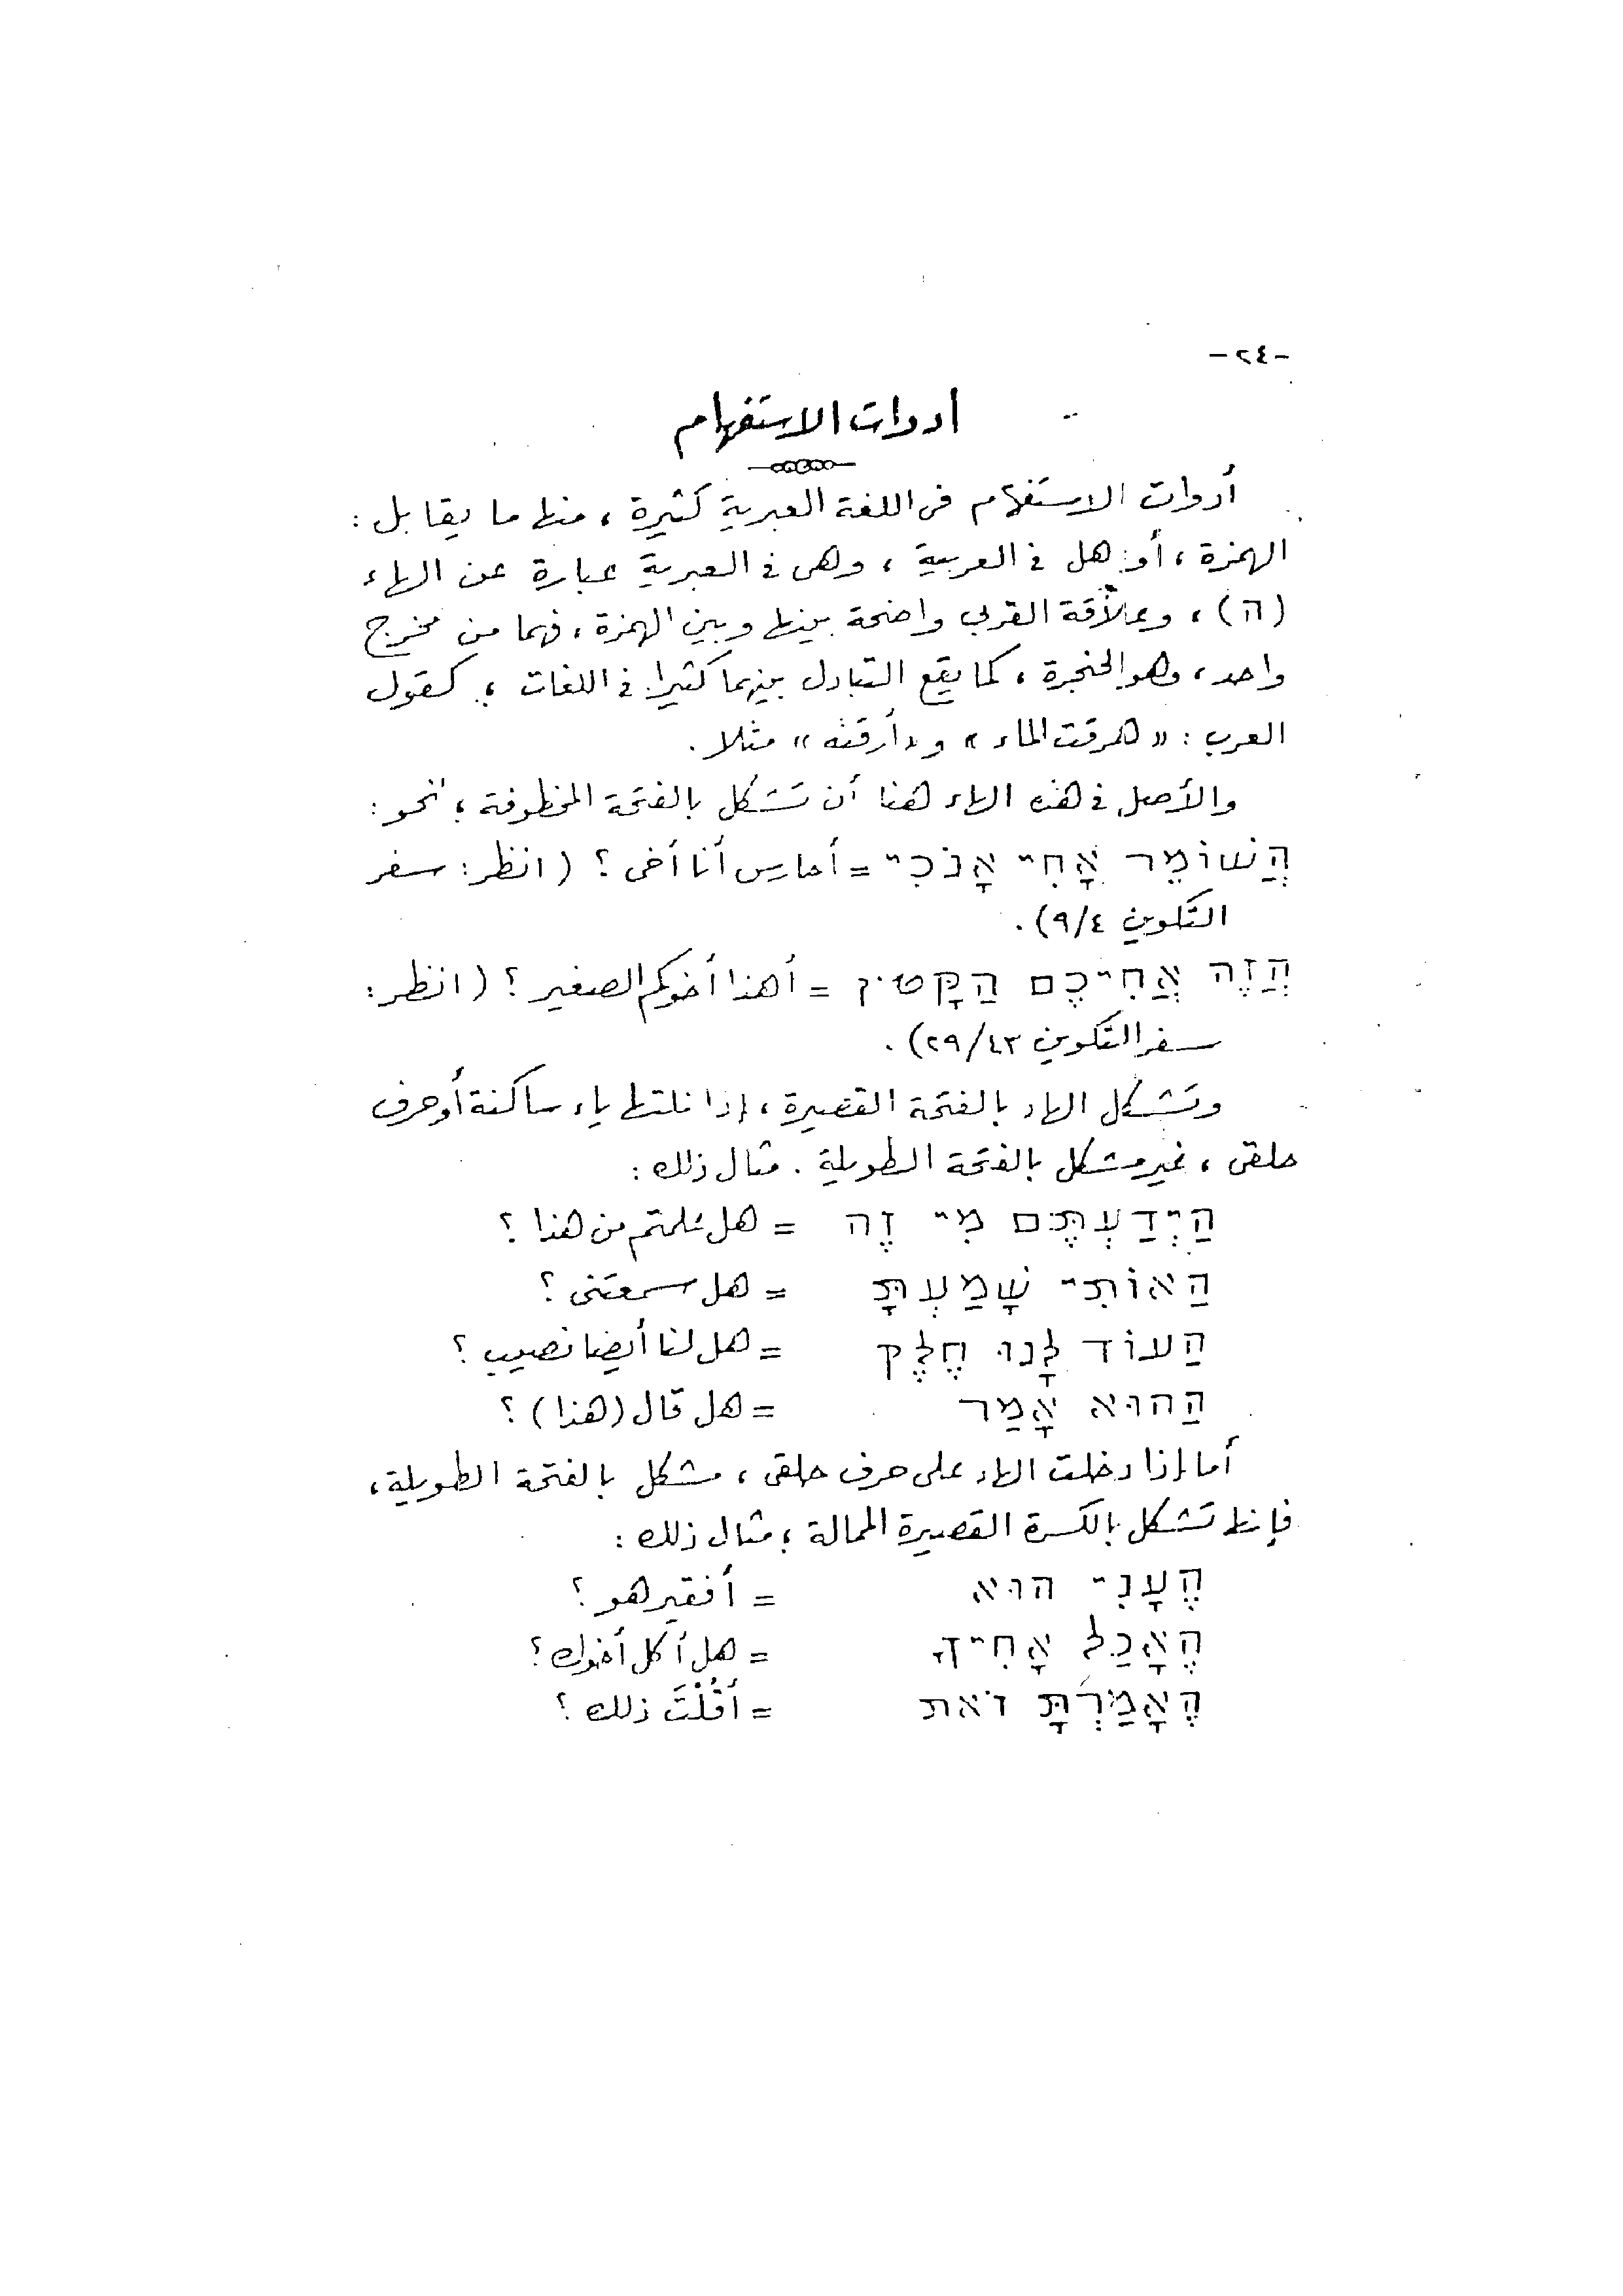 -٢٤-
أدوات الاستفهام
أدوات الاستفهام فى اللغة العبرية كثيرة ، منها ما يقابل :
الهمزة ، أو : هل فى العربية ، وهى فى العبرية عبارة عن الهاء
(ה) ، وعلاقة القربى واضحة بينها وبين الهمزة ، فهما من مخرج
واحد ، وهو الحنجرة ، كما يقع التبادل بينهما كثيرا فى اللغات ؛ كقول
العرب : « هرقت الماء » و « أرقته » مثلا .
والأصل فى هذه الهاء هنا أن تشكل بالفتحة المخطوفة ؛ نحو :
הֲשׁוֹמֵר אָחִי אָנֹכִי = أحارس أنا أخى ؟ ( انظر : سفر
التكوين ٩/٤) .
הֲזֶה אֲחִיכֶם הַקָּטֹן = أهذا أخوكم الصغير ؟ ( انظر :
سفر التكوين ٢٩/٤٣) .
وتشكل الهاء بالفتحة القصيرة ، إذا تلتها ياء ساكنة أو حرف
حلقى ، غير مشكل بالفتحة الطويلة . مثال ذلك :
הַיְדַעְתֶּם מִי זֶה = هل علمتم من هذا ؟
הַאוֹתִי שָׁמַעְתָּ = هل سمعتنى ؟
הַעוֹד לָנוּ חֶלֶק = هل لنا أيضا نصيب ؟
הַהוּא אָמַר = هل قال (هذا) ؟
أما إذا دخلت الهاء على حرف حلقى ، مشكل بالفتحة الطويلة ،
فإنها تشكل بالكسرة القصيرة الممالة ؛ مثال ذلك :
הֶעָנִי הוּא = أفقير هو ؟
הֶאָכַל אָחִיךָ = هل أكل أخوك ؟
הֶאָמַרְתָּ זֹאת = أَقُلْتَ ذلك ؟